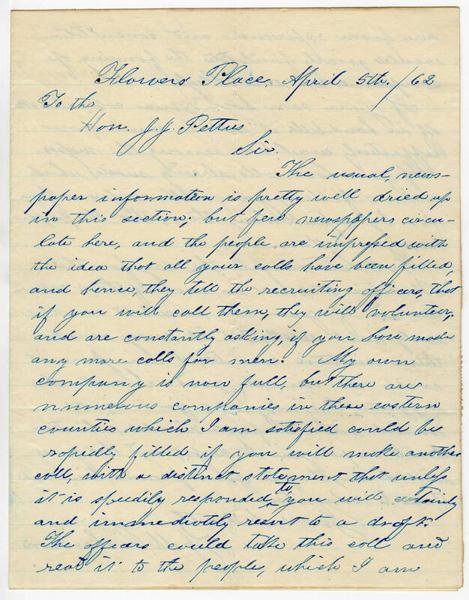 Flowers Place, April 5th. /62
To the
Hon. J. J. Pettus
Sir.
The usual, news-
paper information is pretty well dried up
in this section; but few newspapers circu-
late here, and the people are impressed with
the idea that all your calls have been filled,
and hence, they tell the recruiting officers, that
if you will call them, they will volunteer,
and are constantly asking, if you have made
any more calls for men. My own
company is now full, but there are
numerous companies in these eastern
counties which I am satisfied could be
rapidly filled if you will make another
call, with a distinct statement that unless
it is speedily responded to you will certainly
and immediately resort to a draft.
The officers could take this call and
read it to the people, which I am